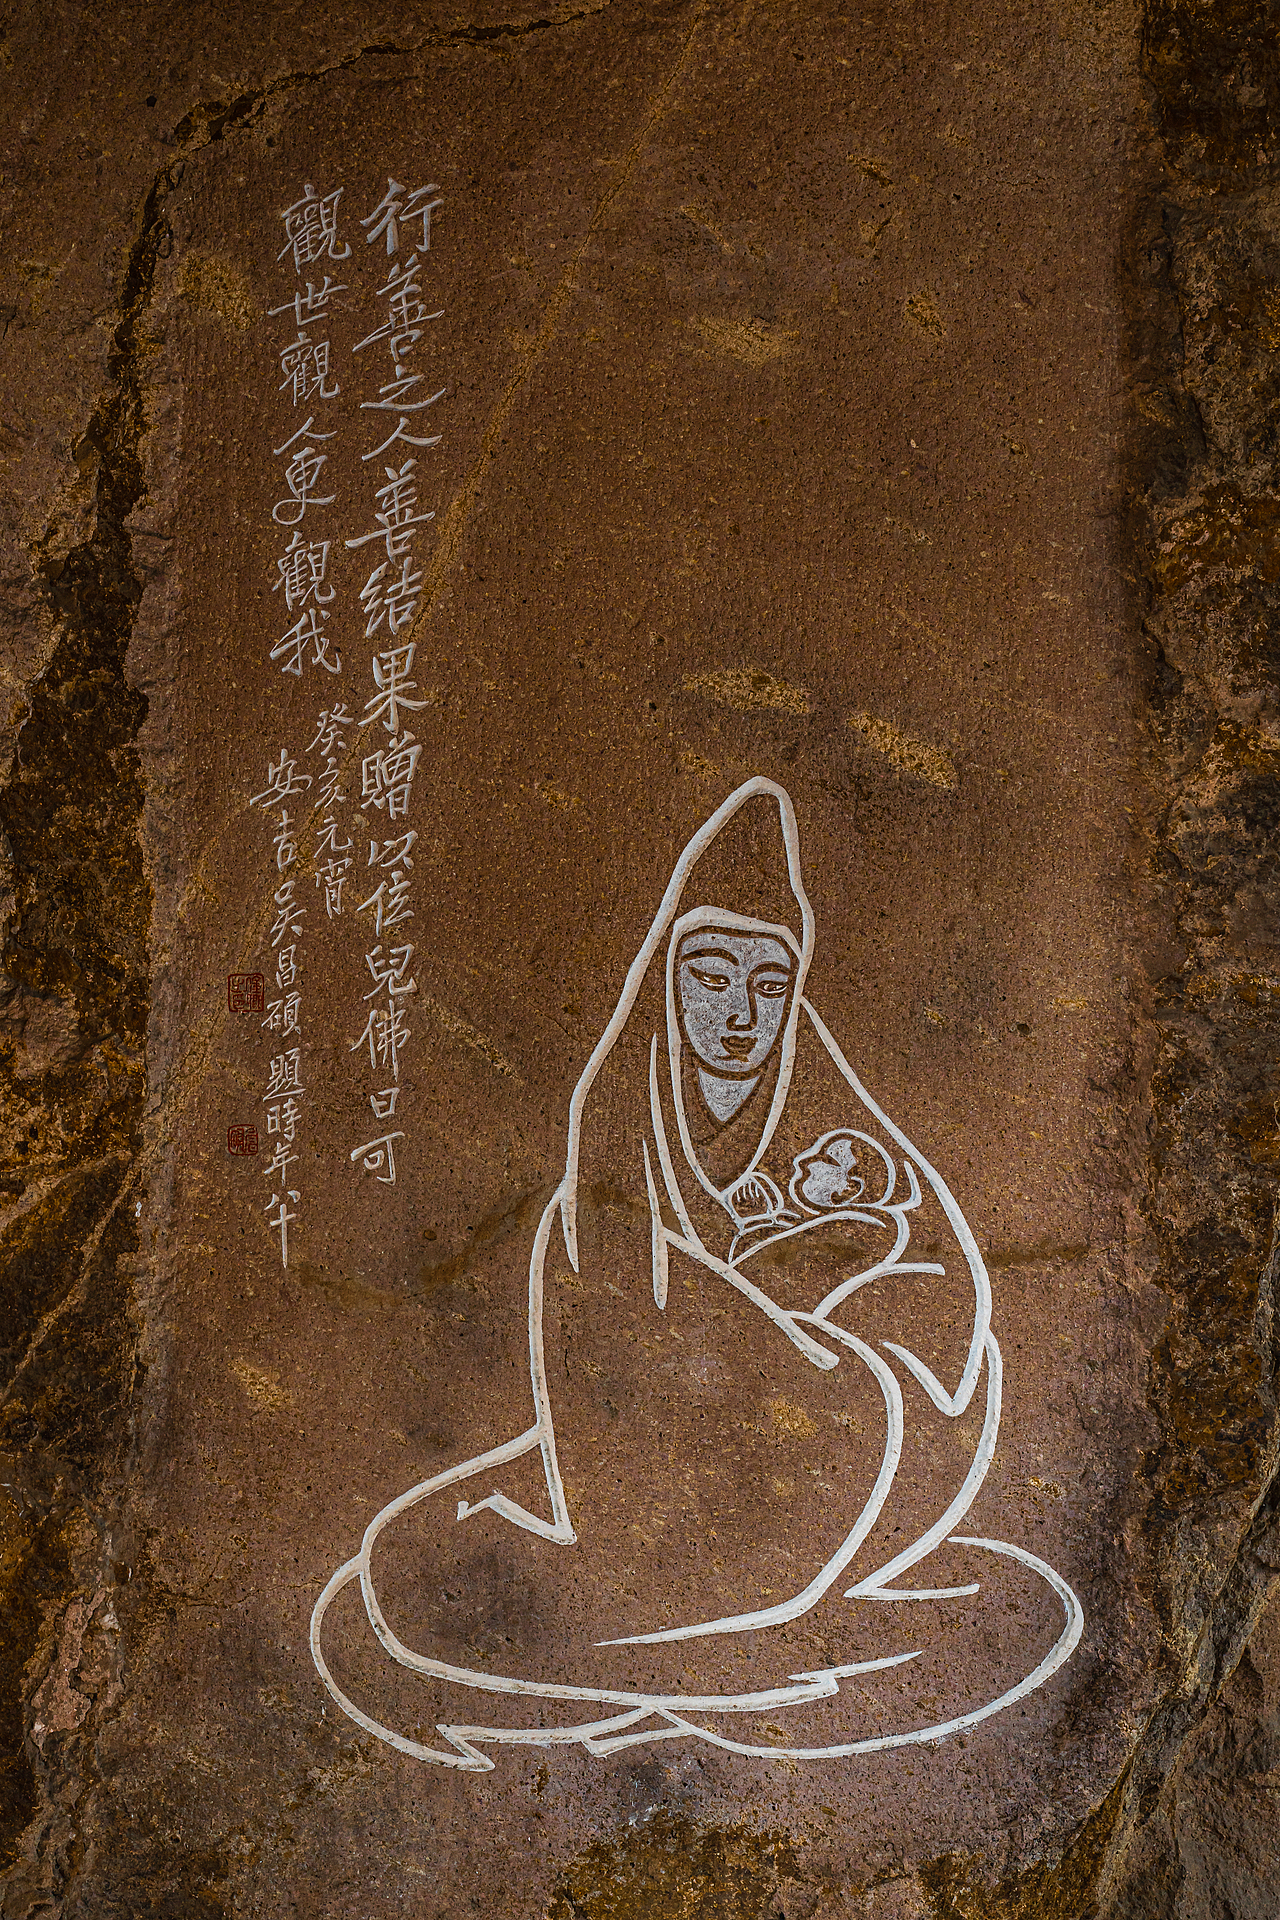 行善之人善結果贈以位兒佛曰可
觀世觀人更觀我
癸亥元宵
安吉吳昌碩題時年八十